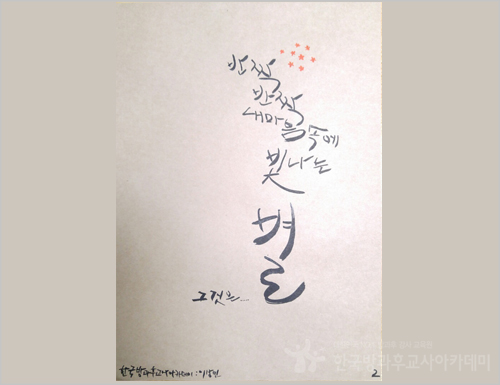 반짝
반짝
내마음속에
빛나는
별
그것은....
한국방과후교사아카데미 :
2
한국방과후교사아카데미